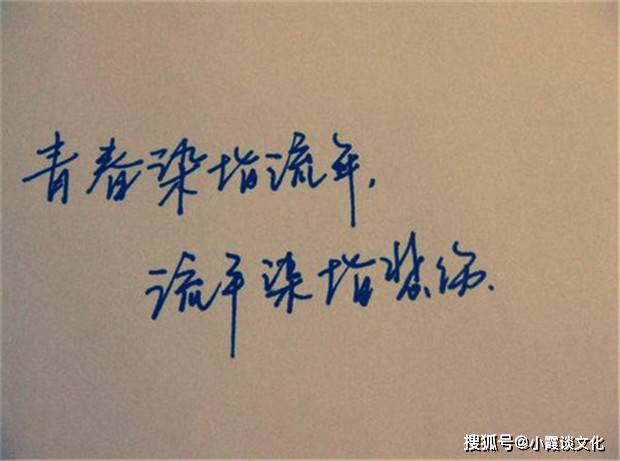 青春染指流年，
流年染指悲伤.
搜狐号@小霞谈文化